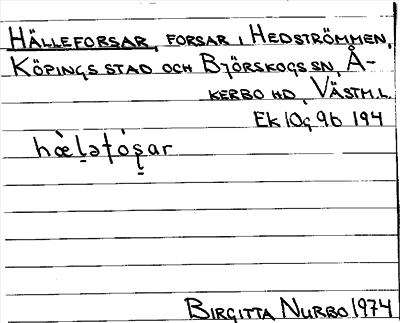 HÄLLEFORSAR, FORSAR I HEDSTRÖMMEN,
KÖPINGS STAD OCH BJÖRSKOGS SN, Å-
KERBO HD, VÄSTM.L.
EK 10g 9b 194
BIRGITTA NURBO 1974